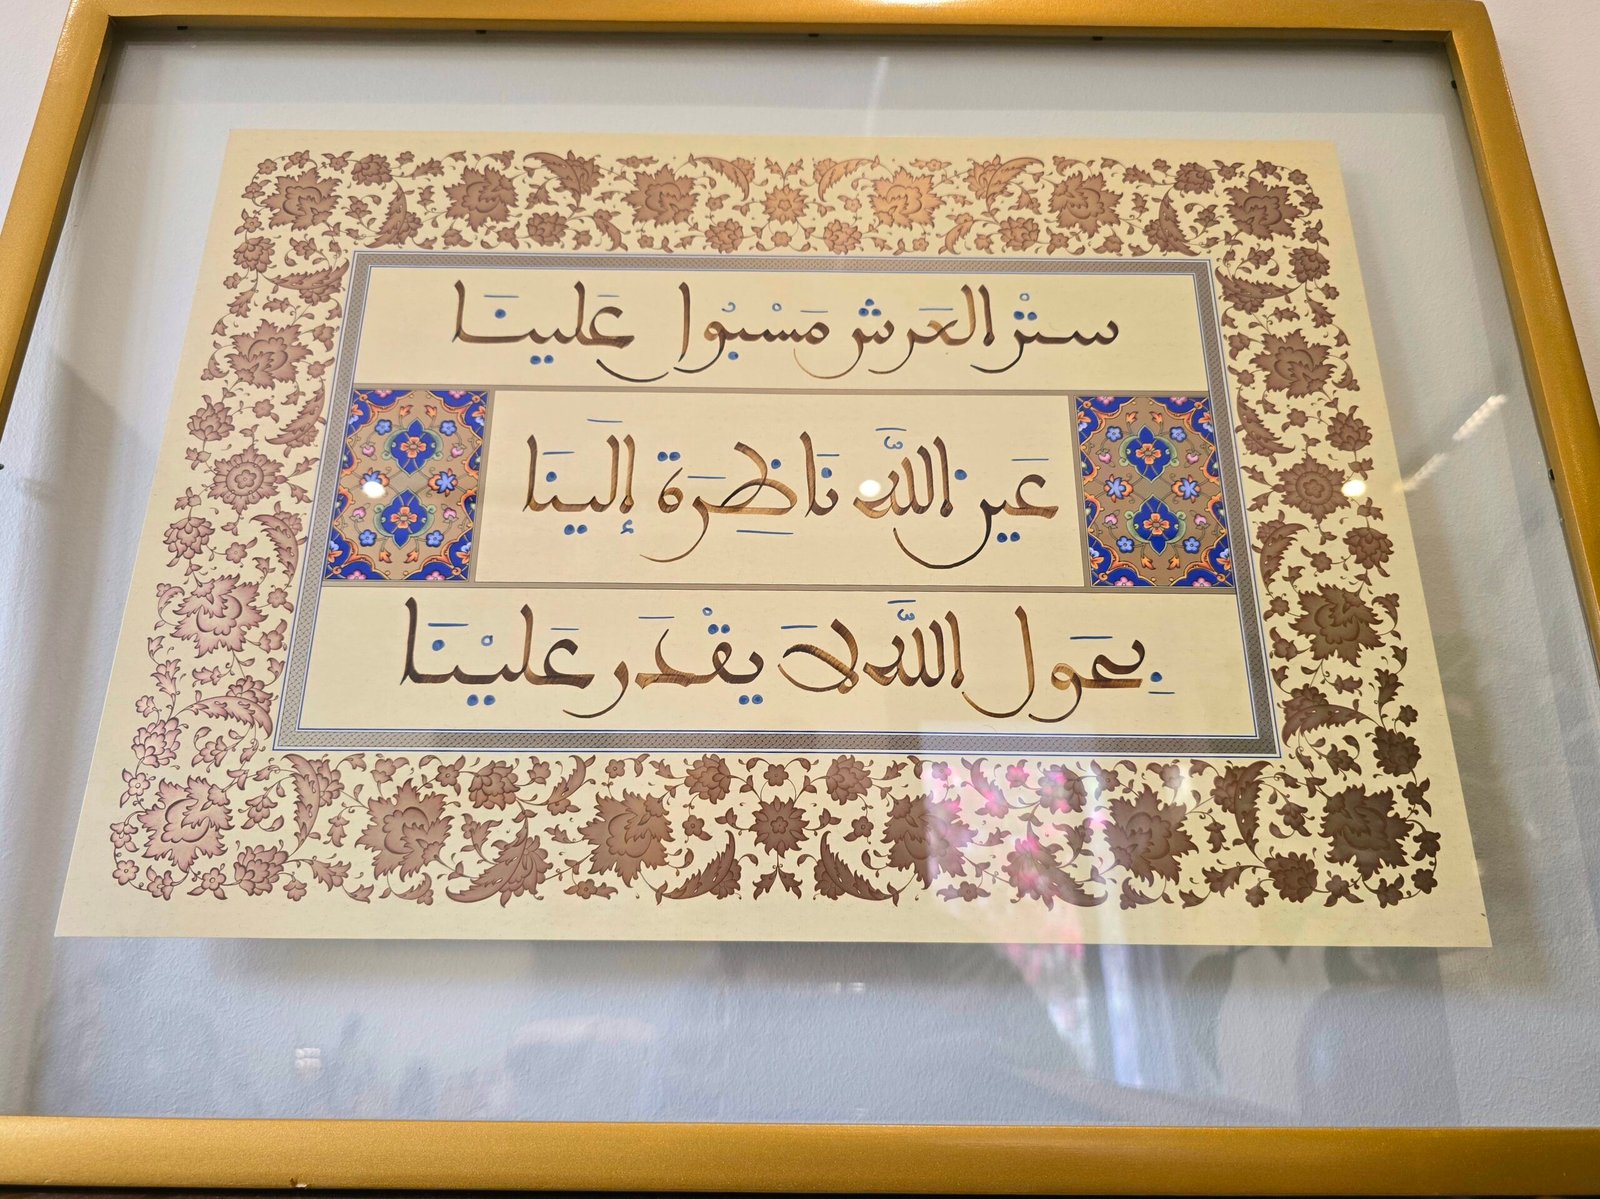 ستْر العَرش مَسْبُوا عَلينَا
عَين اللَّه نَاظِرَة إلَينَا
بِحَول اللَّه لَا يقْدَر عَليْنَا